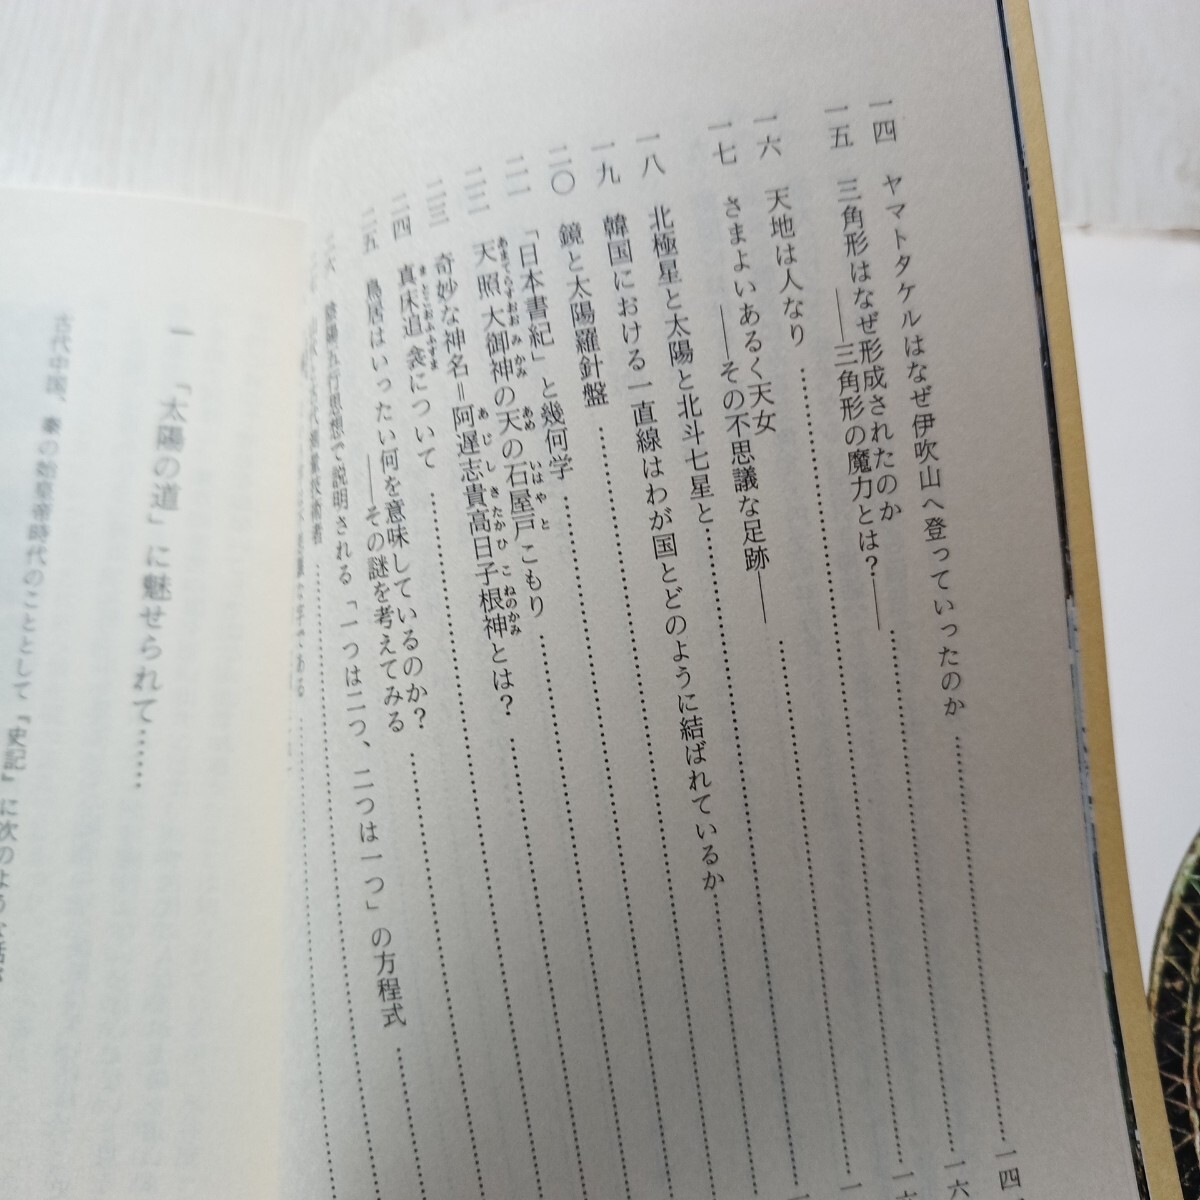 一四 ヤマトタケルはなぜ伊吹山へ登っていったのか……… 一四
一五 三角形はなぜ形成されたのか
――三角形の魔力とは？――……… 一六
一六 天地は人なり………
一七 さまよいあるく天女
――その不思議な足跡――………
一八 北極星と太陽と北斗七星と………
一九 韓国における一直線はわが国とどのように結ばれているか………
二〇 鏡と太陽羅針盤………
二一 「日本書紀」と幾何学………
あまてらすおおみかみ あめ いはやと
二二 天照大御神の天の石屋戸こもり………
あじしきたかひこねのかみ
二三 奇妙な神名＝阿遅志貴高日子根神とは？………
まとこおふふすま
二四 真床追衾について………
二五 鳥居はいったい何を意味しているのか？
――その謎を考えてみる………
二六 陰陽五行思想で説明される「一つは二つ、二つは一つ」の方程式………
一 「太陽の道」に魅せられて……
古代中国、秦の始皇帝時代のこととして『史記』に次のような話